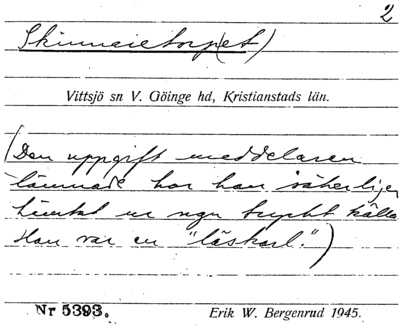 2
Skinnaretorp(et)
Vittsjö sn V. Göinge hd, Kristianstads län.
(Den uppgift meddelaren
lämnade har han säkerligen
hämtat ur ngn tryckt källa
Han var en "läskarl.")
Nr 5393.
Erik W. Bergenrud 1945.